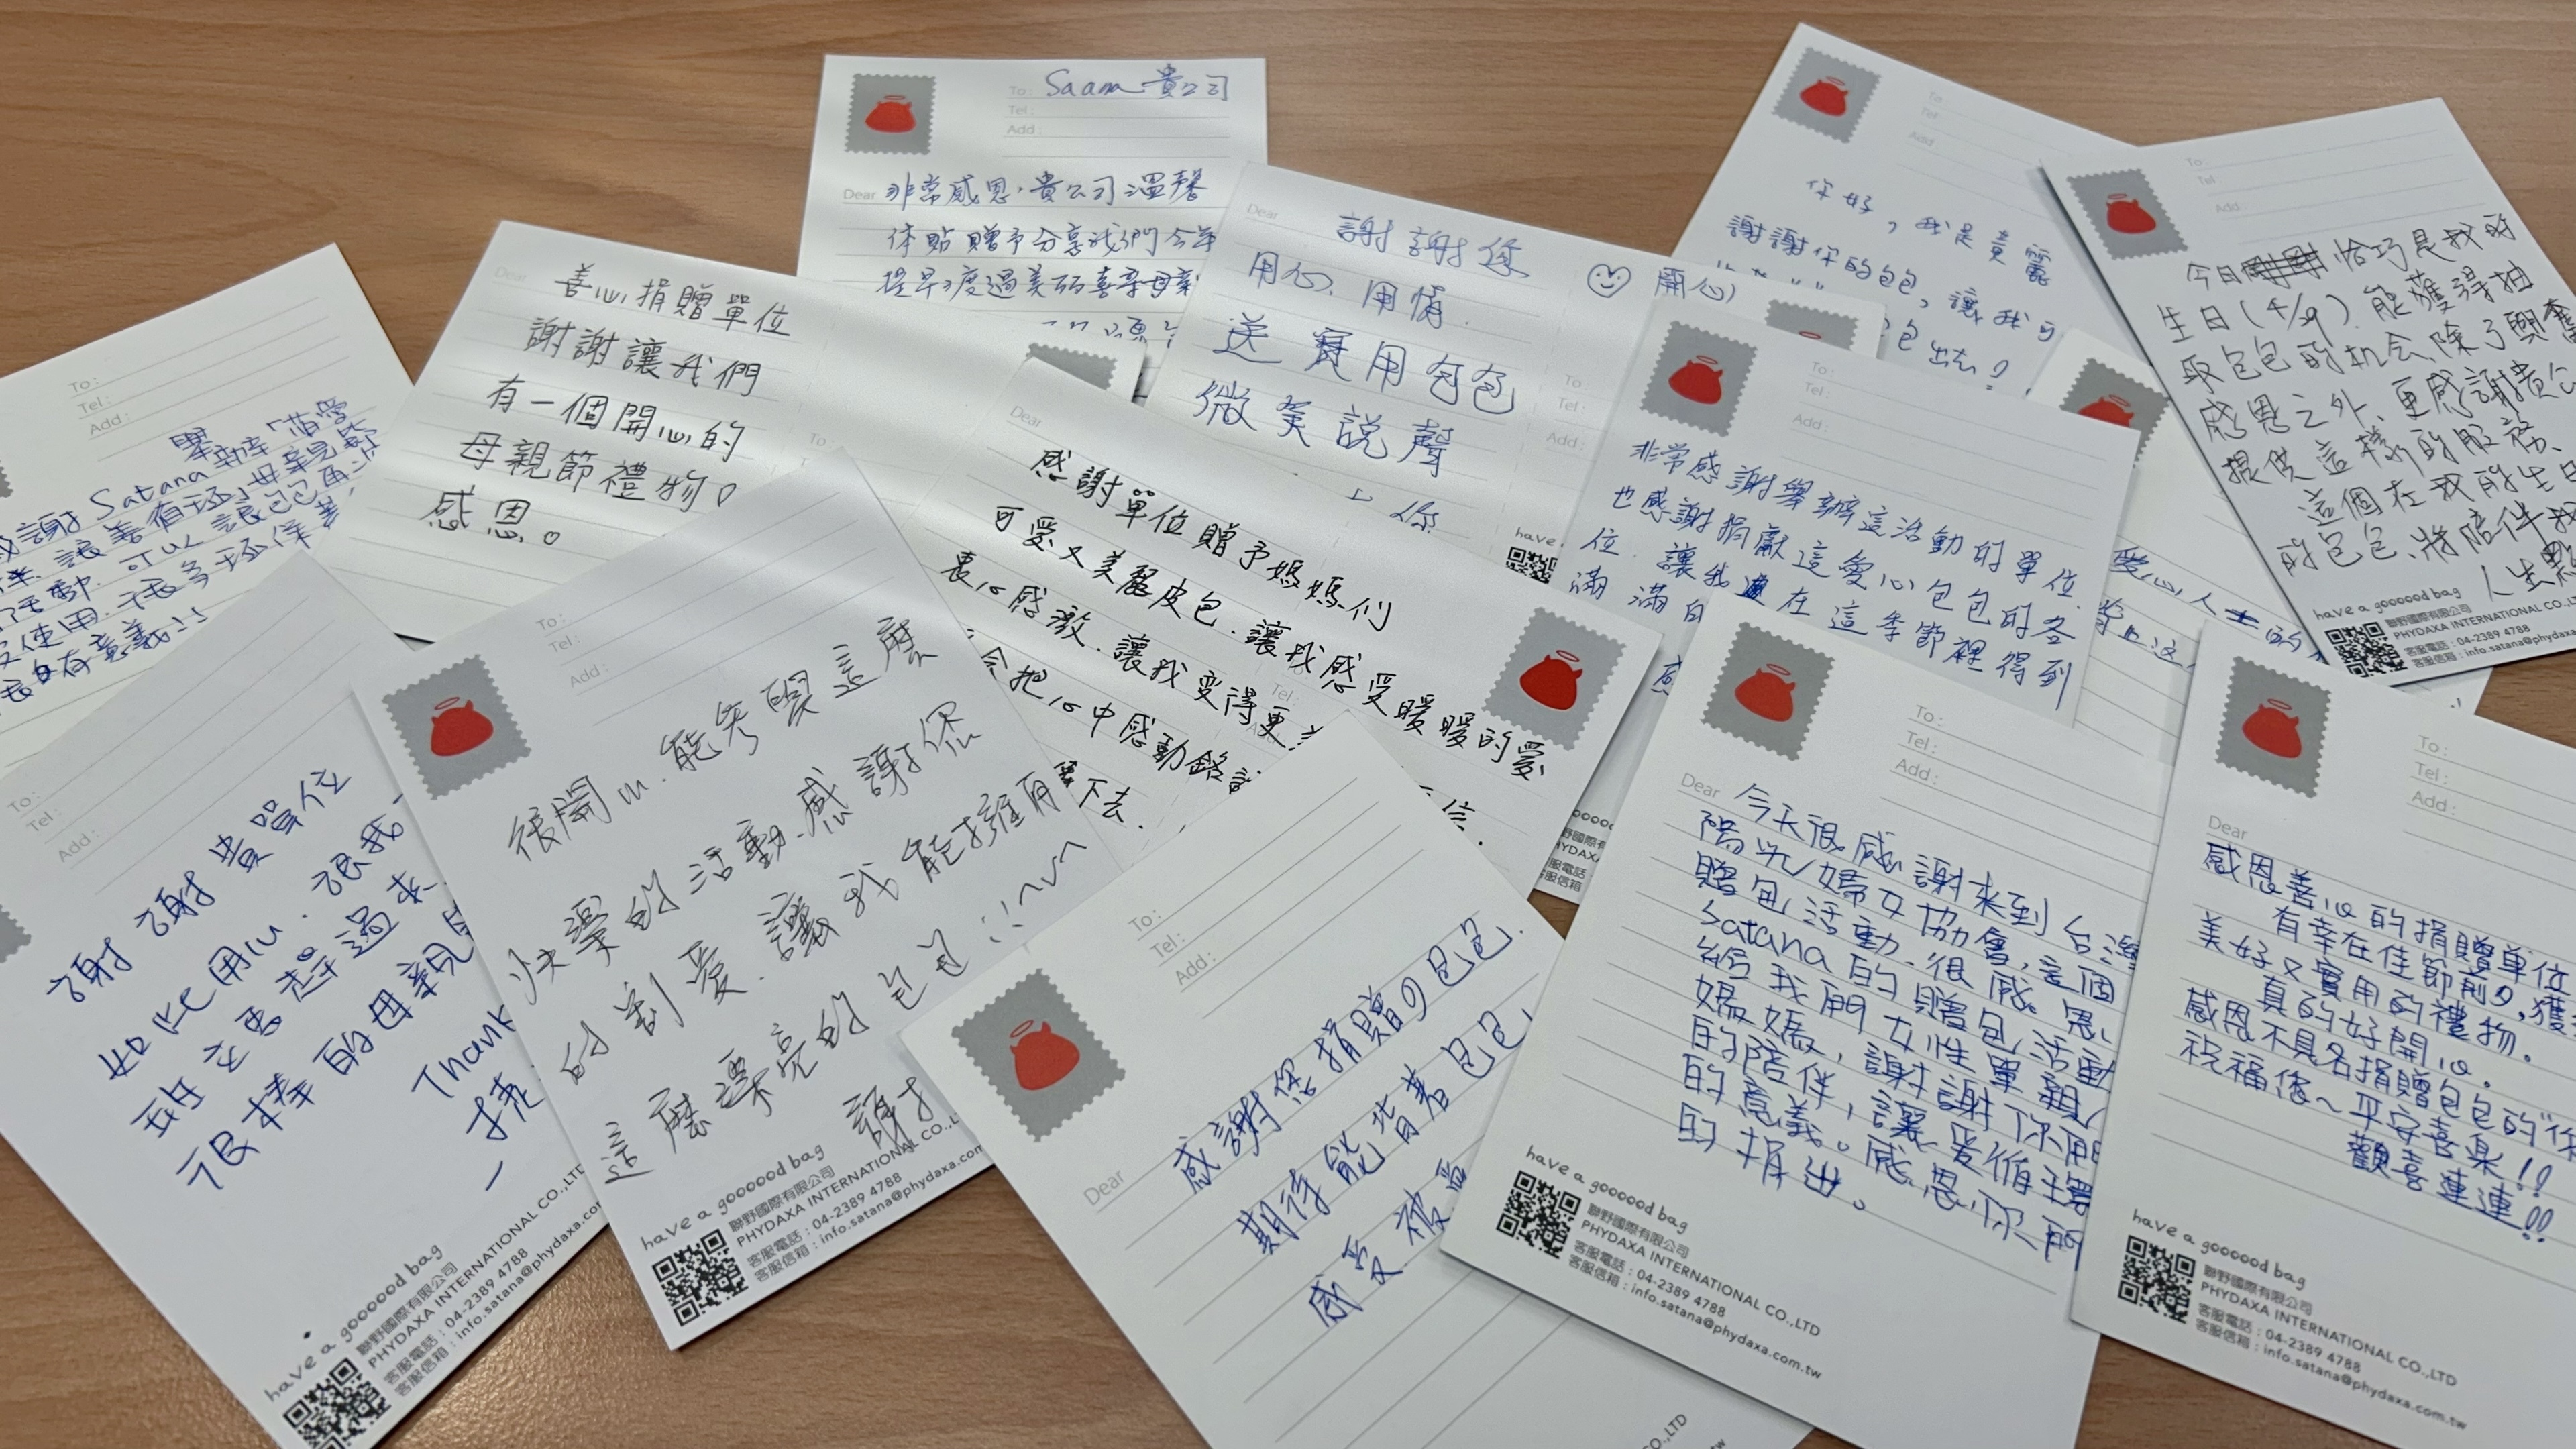 To: Saana 貴公司
Tel:
Add:
Dear 非常感恩,貴公司溫馨
体貼贈予分享我們今年
提早度過美丽喜孕母亲
To:
Tel:
Add:
你好,我是黃
謝謝你的包包,讓我可
包出去!
To:
Tel:
Add:
今日恰巧是我的
生日(4/29).能獲得抽
取包包的机会,除了興奮
感恩之外、更感謝貴公
提供這樣的服務、
這個在我的生日
的包包、將陪伴我
人生
have a goooood bag
聯野國際有限公司
PHYDAXA INTERNATIONAL CO.,LTD
客服電話:04-2389 4788
客服信箱:info.satana@phydaxa
Dear
謝謝您
用心、用情.
開心
送實用包包
微笑說聲
你
To:
Tel:
Add:
have
Dear
善心捐贈單位
謝謝讓我們
有一個開心的
母親節禮物。
感恩。
To
To:
Tel:
Add:
舉辦
謝 Satana
讓善循環」母親節
活動.可以讓包包再次
使用.
有意義
Dear
感謝單位贈予媽媽们
可愛又美麗皮包.讓我感受暖暖的愛
衷心感激.讓我变得更
把心中感動銘
下去.
Tel:
Add
To:
Add:
非常感謝舉辦這活動的單位.
也感謝捐獻這愛心包包的各
位.讓我在這季節裡得到
滿滿
感
愛心人士的
To:
Tel:
Add:
謝謝貴單位
如此用心.很我
很棒的母親
Thank
have a goooood bag
聯野國際有限公司
PHYDAXA INTERNATIONAL CO.,LTD
客服電話:04-2389 4788
客服信箱:info.satana@phydaxa.co
To:
Tel:
Add:
很開心.能參與這麼
快樂的活動.感謝你
的割愛.讓我能擁有
這麼漂亮的包包
謝
have a goooood bag
聯野國際有限公司
PHYDAXA INTERNATIONAL CO.,L
客服電話:04-2389 4788
客服信箱:info.satana@phydaxa.com
To:
Tel:
Add:
Dear
感謝您捐贈の包包.
期待能背著包包,
感受被
CO.,LTD
To:
Tel:
Add:
Dear 今天很感謝來到台灣
陽光婦女協會,這個
贈包活動.很感恩
Satana的贈包活動
給我們女性單親
媽媽,謝謝你們
的陪伴,讓愛循環
的意義。感恩你們
的捐出。
have a goooood bag
聯野國際有限公司
PHYDAXA INTERNATIONAL CO.,LTD
客服電話:04-2389 4788
客服信箱:info.satana@phydaxa.com.tw
To:
Tel:
Add:
Dear
感恩善心的捐贈單位
有幸在佳節前夕,獲
美好又實用的禮物。
真的好開心.
感恩不具名捐贈包包的"你
祝福您~平安喜樂!!
歡喜連連!!
have a goooood bag
聯野國際有限公司
PHYDAXA INTERNATIONAL CO.,LTD
客服電話:04-2389 4788
客服信箱:info.satana@phydaxa.com.tw